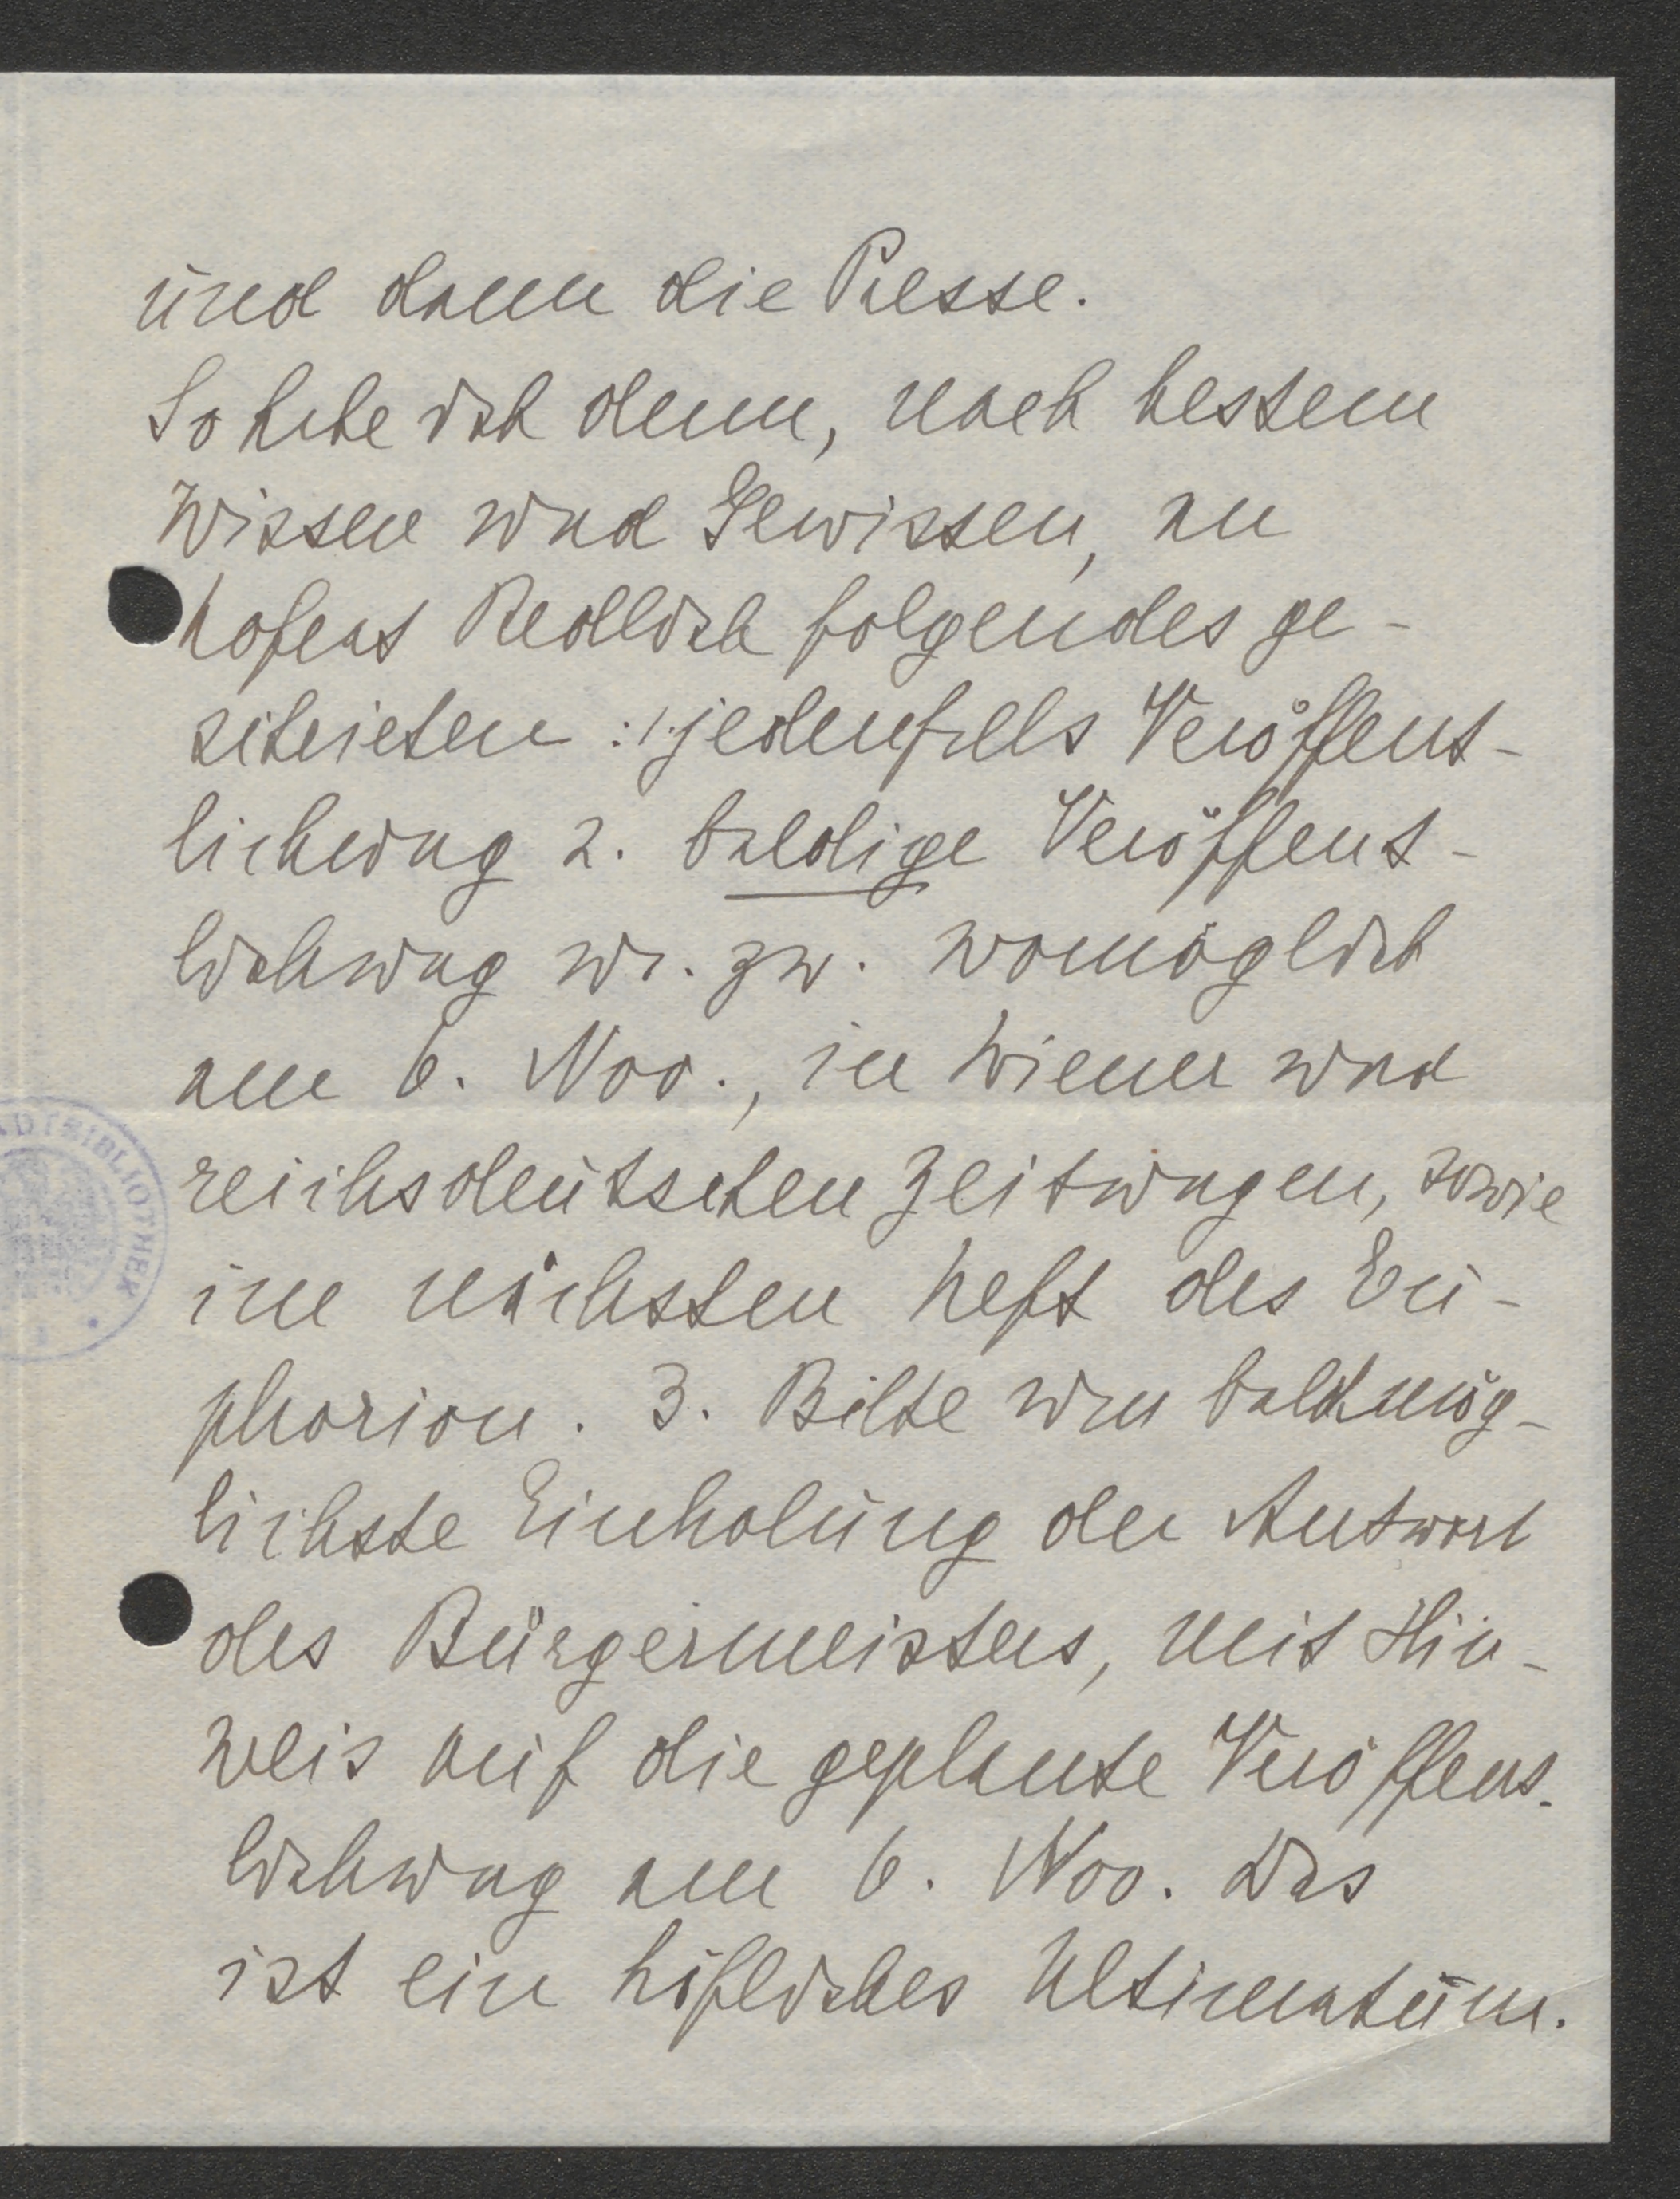 und dann die Presse.
So habe ich denn, nach bestem
Wissen und Gewissen, an
Hofrat Redlich folgendes ge-
schrieben: 1. jedenfalls Veröffent-
lichung 2. baldige Veröffent-
lichung u. zw. womöglich
am 6. Nov., in Wiener und
reichsdeutschen Zeitungen, sowie
im nächsten Heft des Eu-
phorion. 3. Bitte um baldmög-
lichste Einholung der Antwort
des Bürgermeisters, mit Hin-
weis auf die geplante Veröffent-
lichung am 6. Nov. Das
ist ein höfliches Ultimatum.
DTBIBLIOTHEK